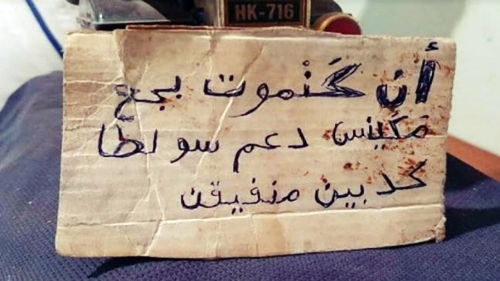 HK-716
أنا كنموت بجع
مكينس دعم سولطا
كدبين منفيقن